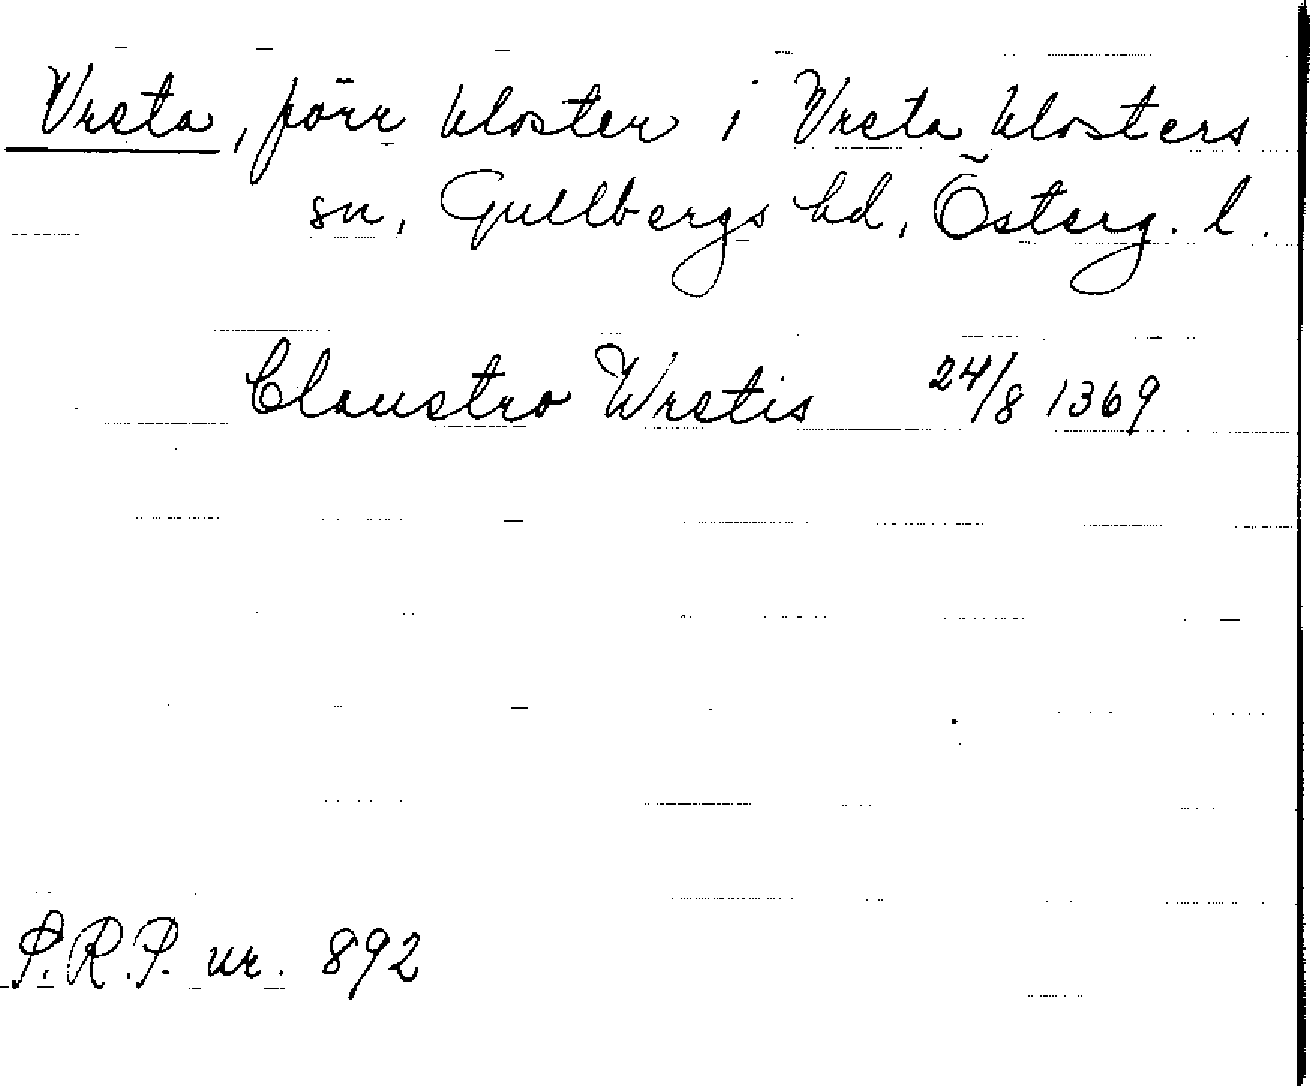 Vreta, förr kloster i Vreta klosters
sn, Gullbergs hd, Österg. l.
Claustro Wretis 24/8 1369
P.R.P. nr. 892